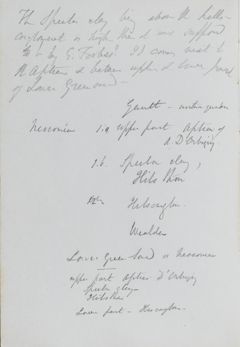 The Speeton clay being above the
is high than I had supposed
to be by E. Forbes. It comes next to
the Aptien & between upper & lower part
of Lower Greensand.
Gault
Neocomien 1.a upper part Aptien of
A. D'Orbigny
1.b Speeton clay,
Hils thon
Hilsconglom.
Wealden
Lower Green Sand or Neocomien
upper part Aptien D'Orbigny
Speeton clay
Hilsthon
Lower part - Hilsconglom.